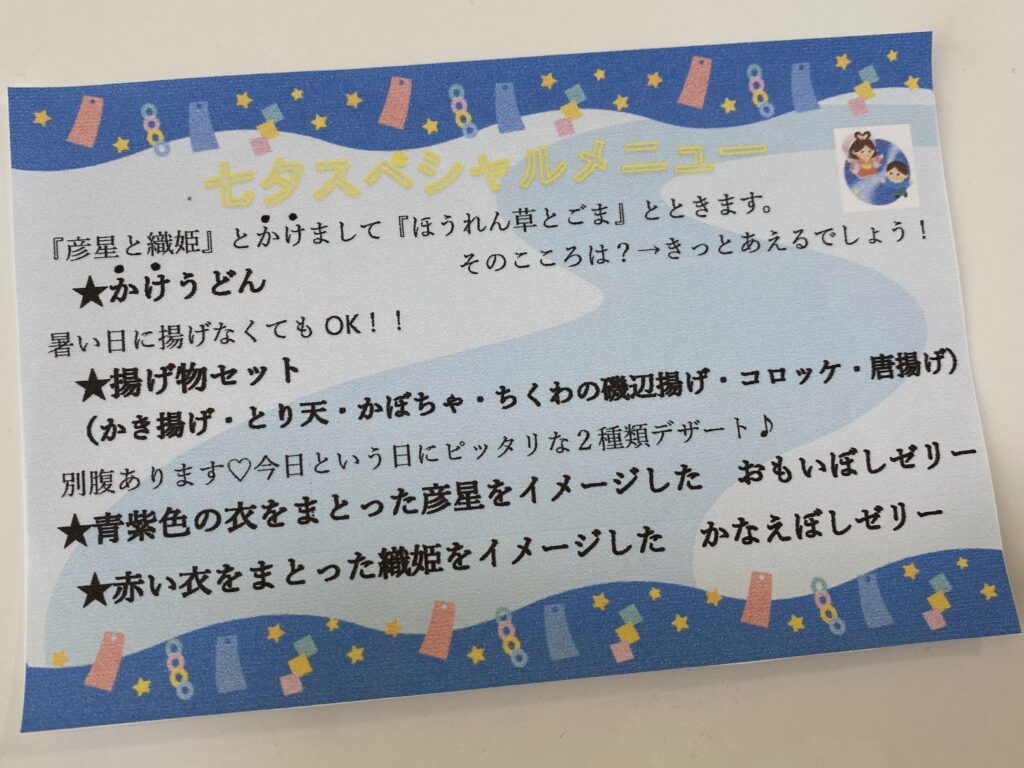 七夕スペシャルメニュー
『彦星と織姫』とかけまして『ほうれん草とごま』とときます。
そのこころは？→きっとあえるでしょう！
★かけうどん
暑い日に揚げなくてもOK！！
★揚げ物セット
（かき揚げ・とり天・かぼちゃ・ちくわの磯辺揚げ・コロッケ・唐揚げ）
別腹あります♡今日という日にピッタリな２種類デザート♪
★青紫色の衣をまとった彦星をイメージした　おもいぼしゼリー
★赤い衣をまとった織姫をイメージした　かなえぼしゼリー